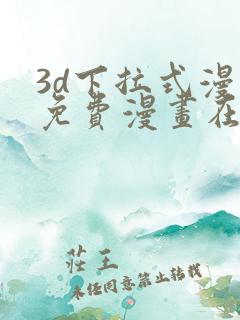 3d下拉式漫
免費漫畫在
莊王
未经同意禁止转载